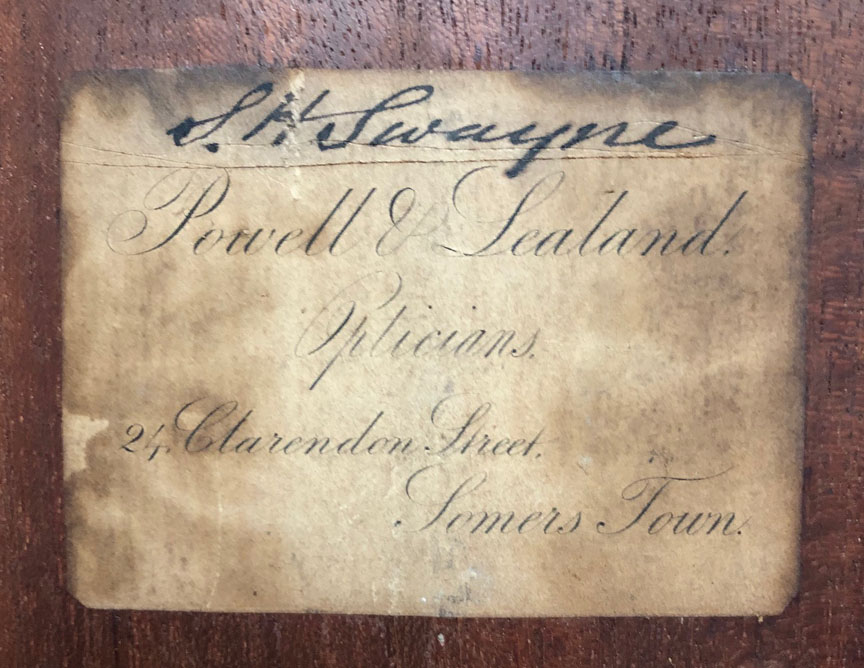 S. H Swayne
Powell & Lealand.
Opticians.
24, Clarendon Street,
Somers Town.